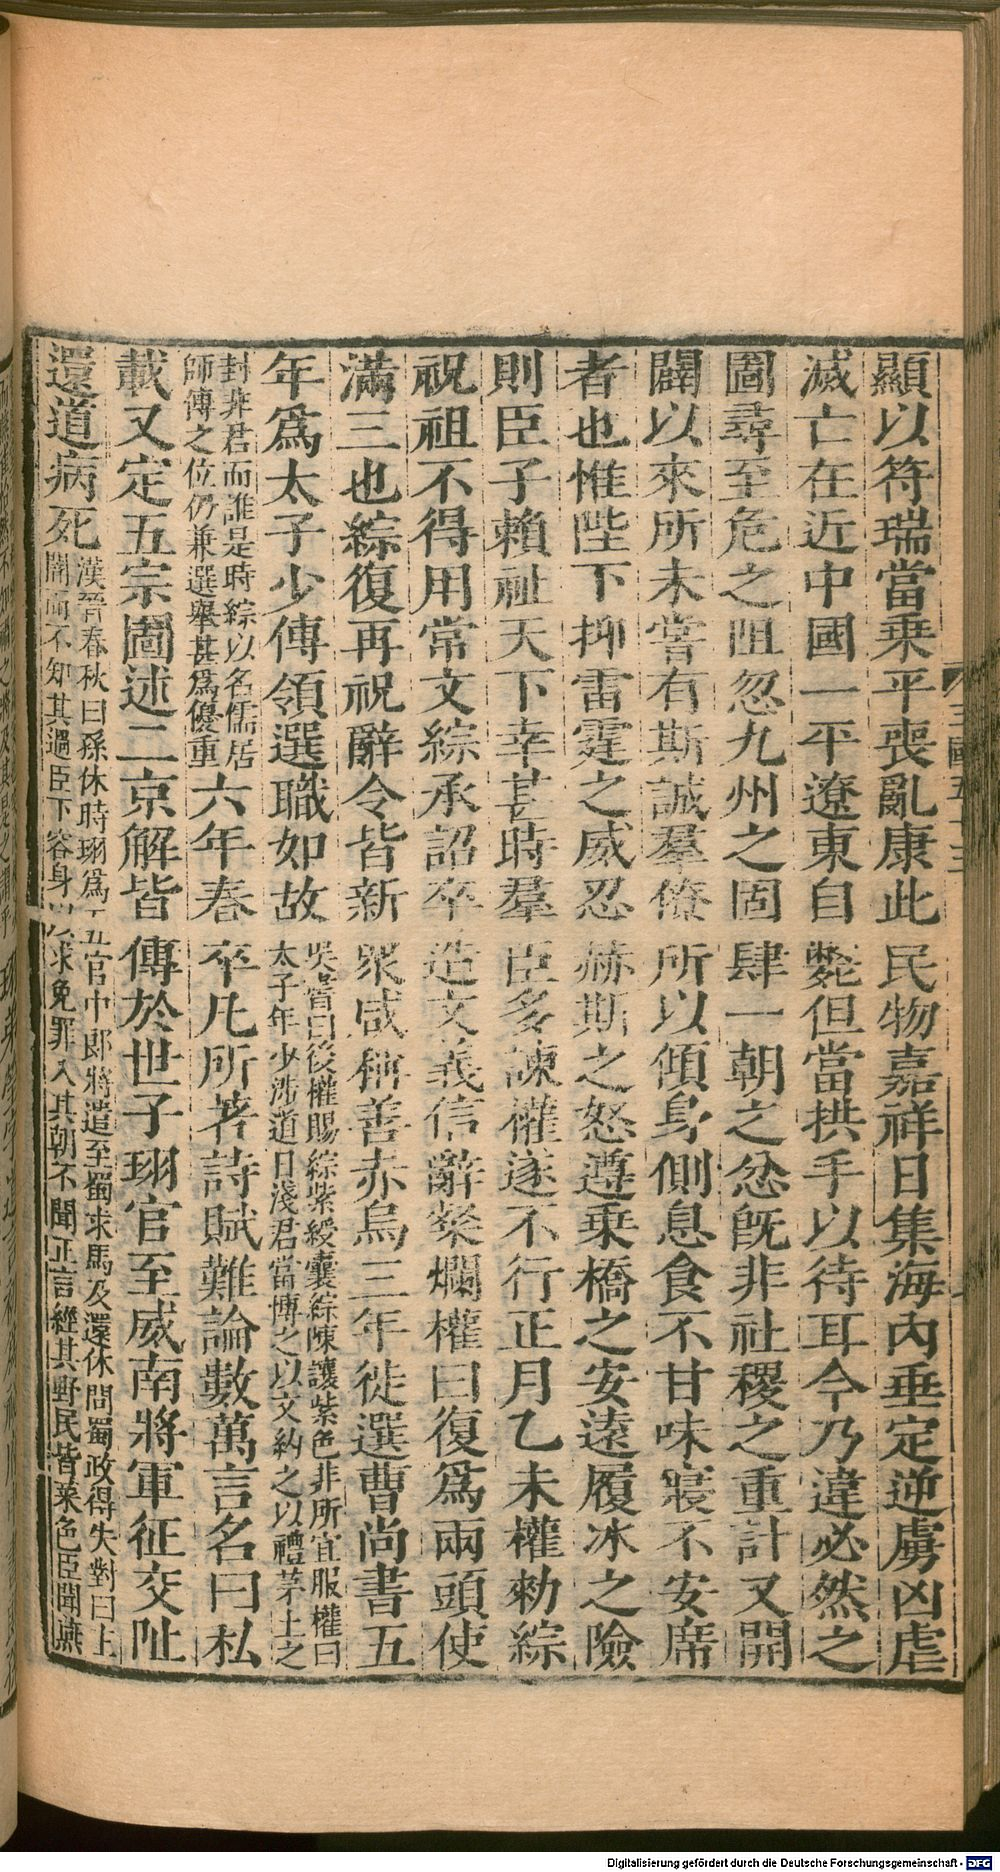 顯以符瑞當乗平喪亂康此民物嘉祥日集海内垂定逆虜凶虐
滅亡在近中國一平遼東自斃但當拱手以待耳今乃違必然之
圖尋至危之阻忽九州之固肆一朝之忿旣非社稷之重計又開
闢以來所未嘗有斯誠羣僚所以傾身側息食不甘味寢不安席
者也惟陛下抑雷霆之威忍赫斯之怒遵乗橋之安遠履冰之險
則臣子賴祉天下幸甚時羣臣多諫權遂不行正月乙未權勑綜
祝祖不得用常文綜承詔卒造文義信辭粲爛權曰復爲兩頭使
滿三也綜復再祝辭令皆新衆咸稱善赤烏三年徙選曹尚書五
年爲太子少傅領選職如故吳書曰後權賜綜紫綬囊綜陳讓紫色非所宜服權曰
太子年少涉道日淺君當博之以文約之以禮茅土之
封非君而誰是時綜以名儒居
師傅之位仍兼選舉甚爲優重六年春卒凡所著詩賦難論數萬言名曰私
載又定五宗圖述二京解皆傳於世子珝官至威南將軍征交阯
還道病死漢晉春秋曰孫休時珝爲五官中郎將遣至蜀求馬及還休問蜀政得失對曰主
闇而不知其過臣下容身以求免罪入其朝不聞正言經其野民皆菜色臣聞燕
三國五十三
Digitalisierung gefördert durch die Deutsche Forschungsgemeinschaft - DFG